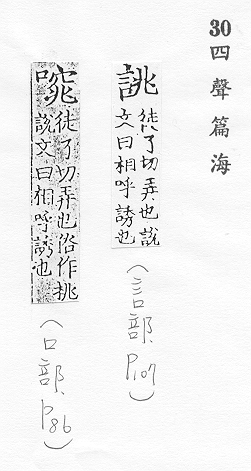 30四聲篇海
誂 徒了切弄也說
文曰相呼誘也
(言部, P107)
徒了切弄也俗作挑
說文曰相呼誘也
(口部, P86)